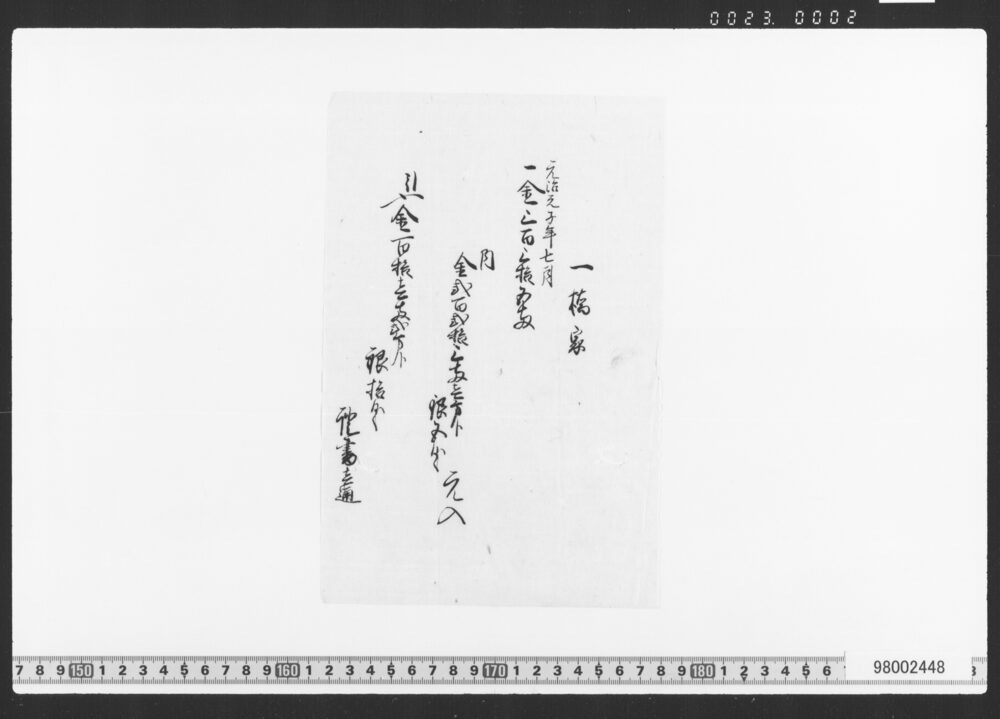 0023. 0002
一橋家
元治元子年七月
一金三百三拾五両
同
金弐百弐拾三両壱分ト
銀五匁
元入
引〆
金百拾壱両弐分ト
銀拾匁
証書壱通
7 8 9 150 1 2 3 4 5 6 7 8 9 160 1 2 3 4 5 6 7 8 9 170 1 2 3 4 5 6 7 8 9 180 1 2 3 4 5 6
98002448